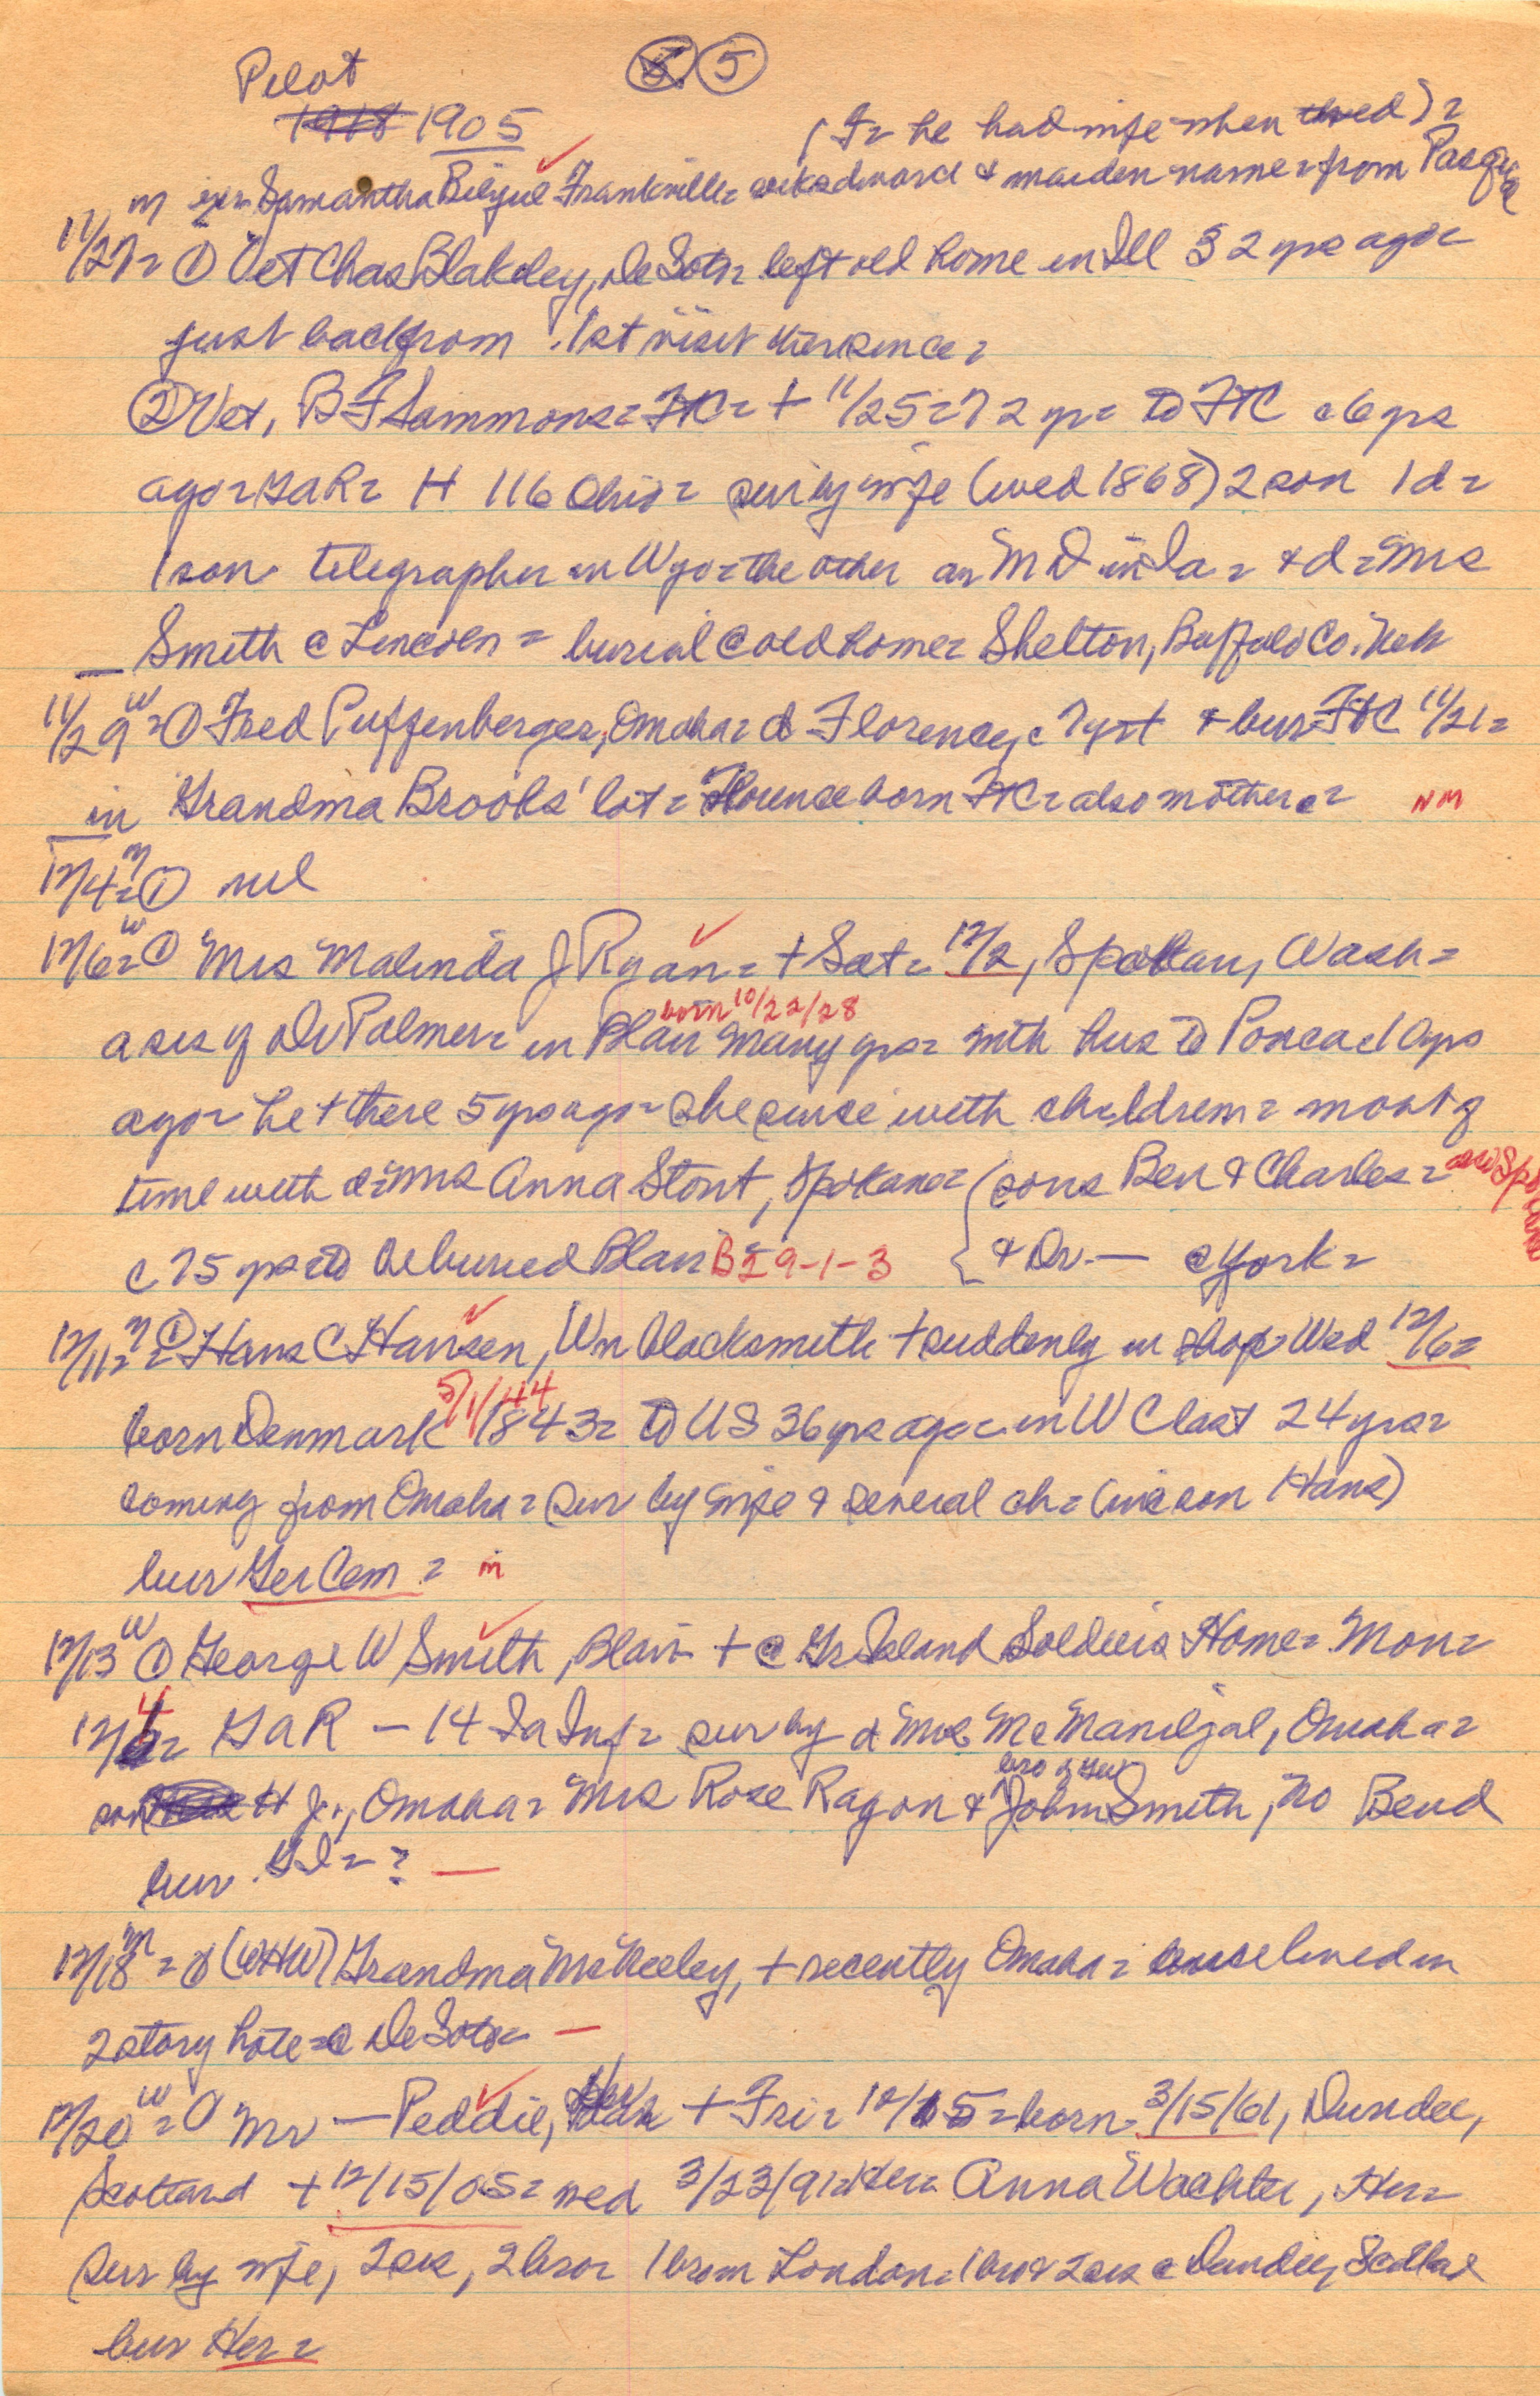 Pilot 5
1905 (Is he had wife when wed) =
Samantha Bilyeu Frankville = seeks divorce & maiden name = from Pasq
11/27 = ① Vet Chas Blakeley, De Soto = left old home in Ill 32 yrs ago =
just back from 1st visit there since =
② Vet, B F Sammons = FtC = + 11/25 = 72 yr = to FtC c 6 yrs
ago = GAR = H 116 Ohio = sur by wife (wed 1868) 2 son 1 d =
1 son telegrapher in Wyo = the other an MD in Ia = & d = Mrs
Smith @ Lincoln = burial @ old home = Shelton, Buffalo Co. Neb
11/29 W = ① Fred Puffenberger, Omaha = d Florence, c 7 yr + & bur FtC 11/21 =
in Grandma Brooks' lot = Florence born FtC = also mother = NM
12/4 M = ① nil
12/6 = W ① Mrs Malinda J Ryan = + Sat = 12/2, Spokane, Wash =
born 10/22/28
a sis of Dr Palmer = in Blair many yrs = with hus to Ponca c 10 yrs
ago = he + there 5 yrs ago = she since with children = most of
time with d = Mrs Anna Stout, Spokane = (sons Ben & Charles = also Spokane
c 75 yrs = to be buried Blair B 29-1-3 & Dr. — @ York =
12/11 = M ① = Hans C Hansen, Wn blacksmith + suddenly in shop = Wed 12/6 =
5/1/44
born Denmark 1843 = to US 36 yrs ago = in W C last 24 yrs =
coming from Omaha = sur by wife & several ch = (inc son Hans)
bur Ger Cem = in
12/13 W ① George W Smith, Blair + @ Gr Island Soldiers Home = Mon =
12/4 = GAR – 14 Ia Inf = sur by d Mrs McManigal, Omaha =
bro of
son H Jr., Omaha = Mrs Rose Ragon & John Smith, No Bend
bur. GI = ? —
12/18 M = (WHW) Grandma McNeeley, + recently Omaha = once lived in
2 story hote = @ De Soto = —
12/20 W = ① Mr — Peddie, Her + Fri = 12/15 = born 3/15/61, Dundee,
Scotland + 12/15/05 = wed 3/23/91 = Her = Anna Wachter, Her =
sur by wife, 2 sis, 2 bro = 1 bro in London = 1 bro & 2 sis @ Dundee, Scotland
bur Her =